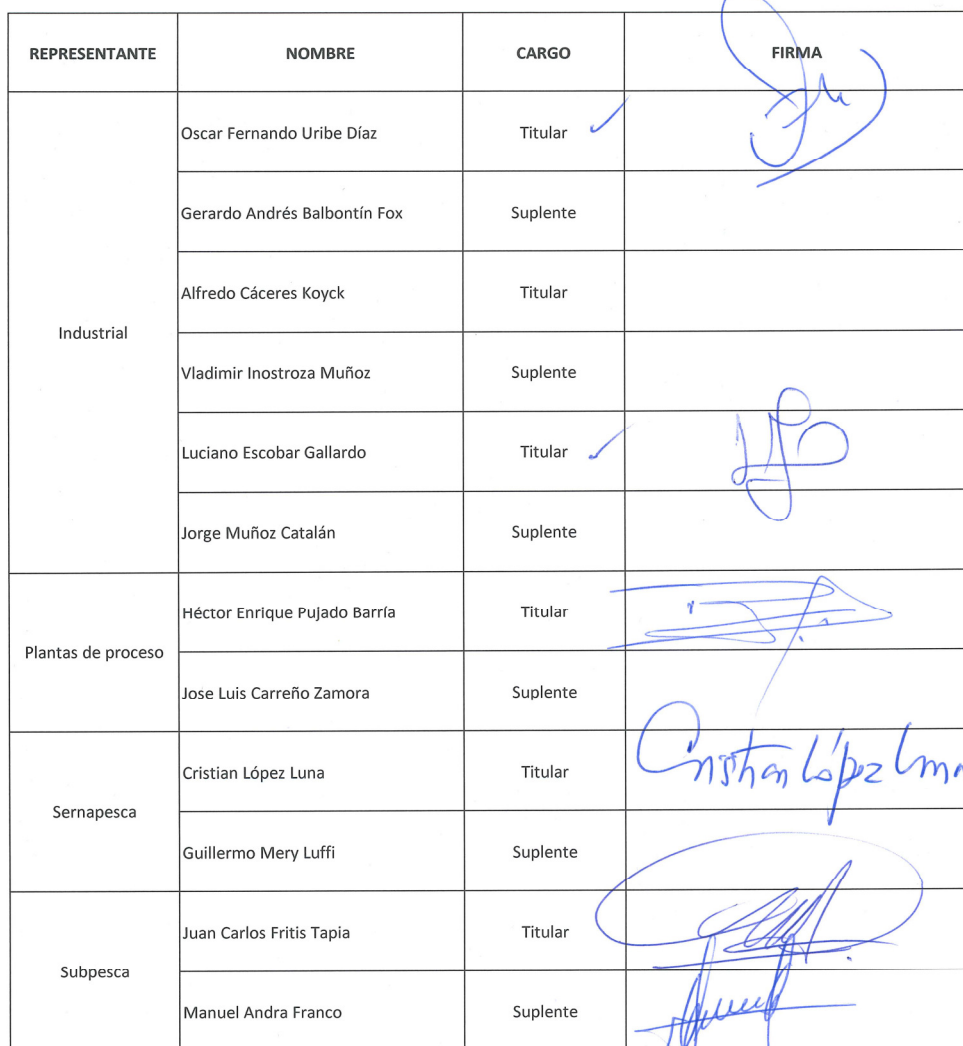 REPRESENTANTE NOMBRE CARGO FIRMA
Industrial
Oscar Fernando Uribe Díaz Titular
Gerardo Andrés Balbontín Fox Suplente
Alfredo Cáceres Koyck Titular
Vladimir Inostroza Muñoz Suplente
Luciano Escobar Gallardo Titular
Jorge Muñoz Catalán Suplente
Plantas de proceso
Héctor Enrique Pujado Barría Titular
Jose Luis Carreño Zamora Suplente
Sernapesca
Cristian López Luna Titular Cristian López Luna
Guillermo Mery Luffi Suplente
Subpesca
Juan Carlos Fritis Tapia Titular
Manuel Andra Franco Suplente